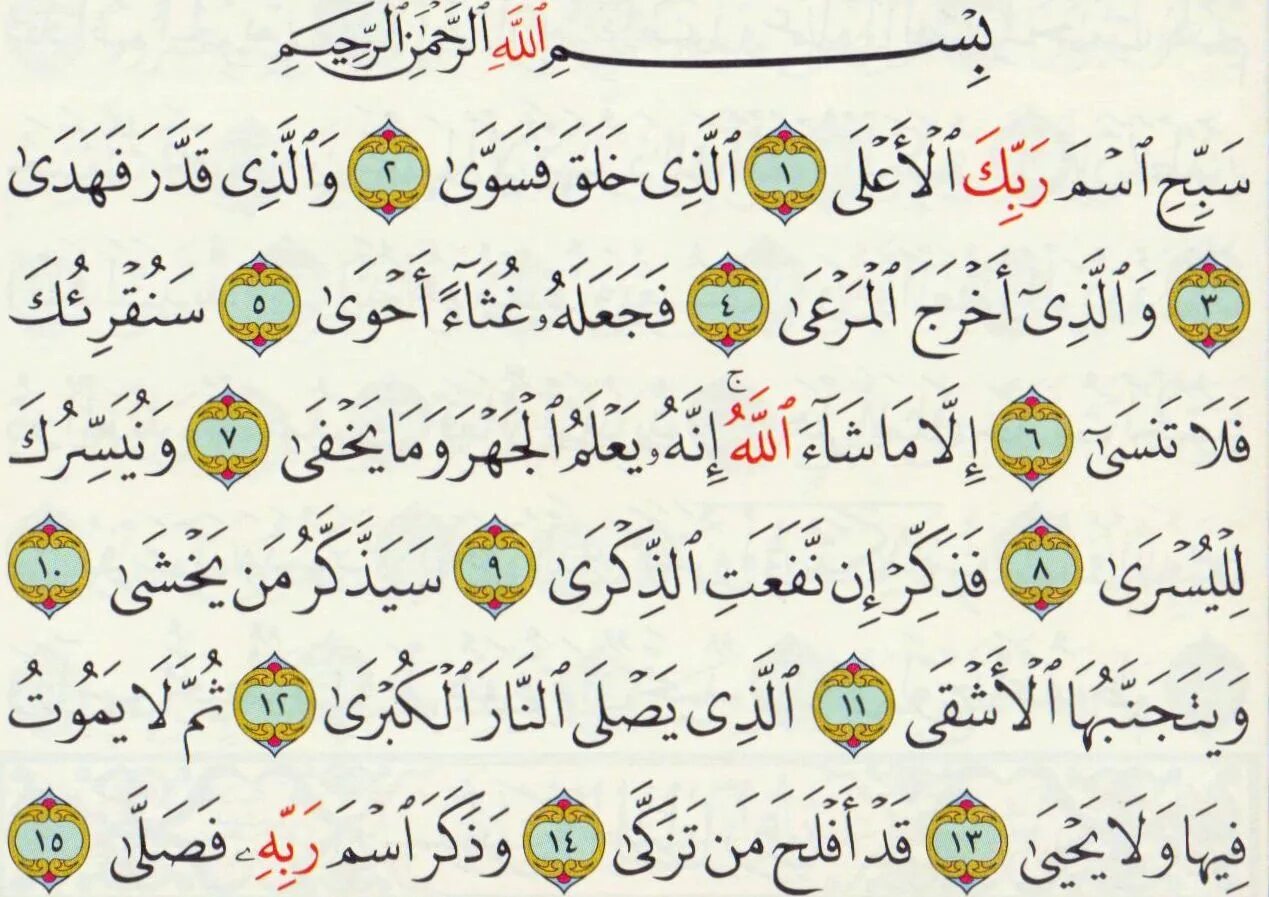 بِسْمِ ٱللَّهِ ٱلرَّحْمَٰنِ ٱلرَّحِيمِ
سَبِّحِ ٱسْمَ رَبِّكَ ٱلْأَعْلَى ١ ٱلَّذِى خَلَقَ فَسَوَّىٰ ٢ وَٱلَّذِى قَدَّرَ فَهَدَىٰ
٣ وَٱلَّذِىٓ أَخْرَجَ ٱلْمَرْعَىٰ ٤ فَجَعَلَهُۥ غُثَآءً أَحْوَىٰ ٥ سَنُقْرِئُكَ
فَلَا تَنسَىٰٓ ٦ إِلَّا مَا شَآءَ ٱللَّهُ ۚ إِنَّهُۥ يَعْلَمُ ٱلْجَهْرَ وَمَا يَخْفَىٰ ٧ وَنُيَسِّرُكَ
لِلْيُسْرَىٰ ٨ فَذَكِّرْ إِن نَّفَعَتِ ٱلذِّكْرَىٰ ٩ سَيَذَّكَّرُ مَن يَخْشَىٰ ١٠
وَيَتَجَنَّبُهَا ٱلْأَشْقَى ١١ ٱلَّذِى يَصْلَى ٱلنَّارَ ٱلْكُبْرَىٰ ١٢ ثُمَّ لَا يَمُوتُ
فِيهَا وَلَا يَحْيَىٰ ١٣ قَدْ أَفْلَحَ مَن تَزَكَّىٰ ١٤ وَذَكَرَ ٱسْمَ رَبِّهِۦ فَصَلَّىٰ ١٥